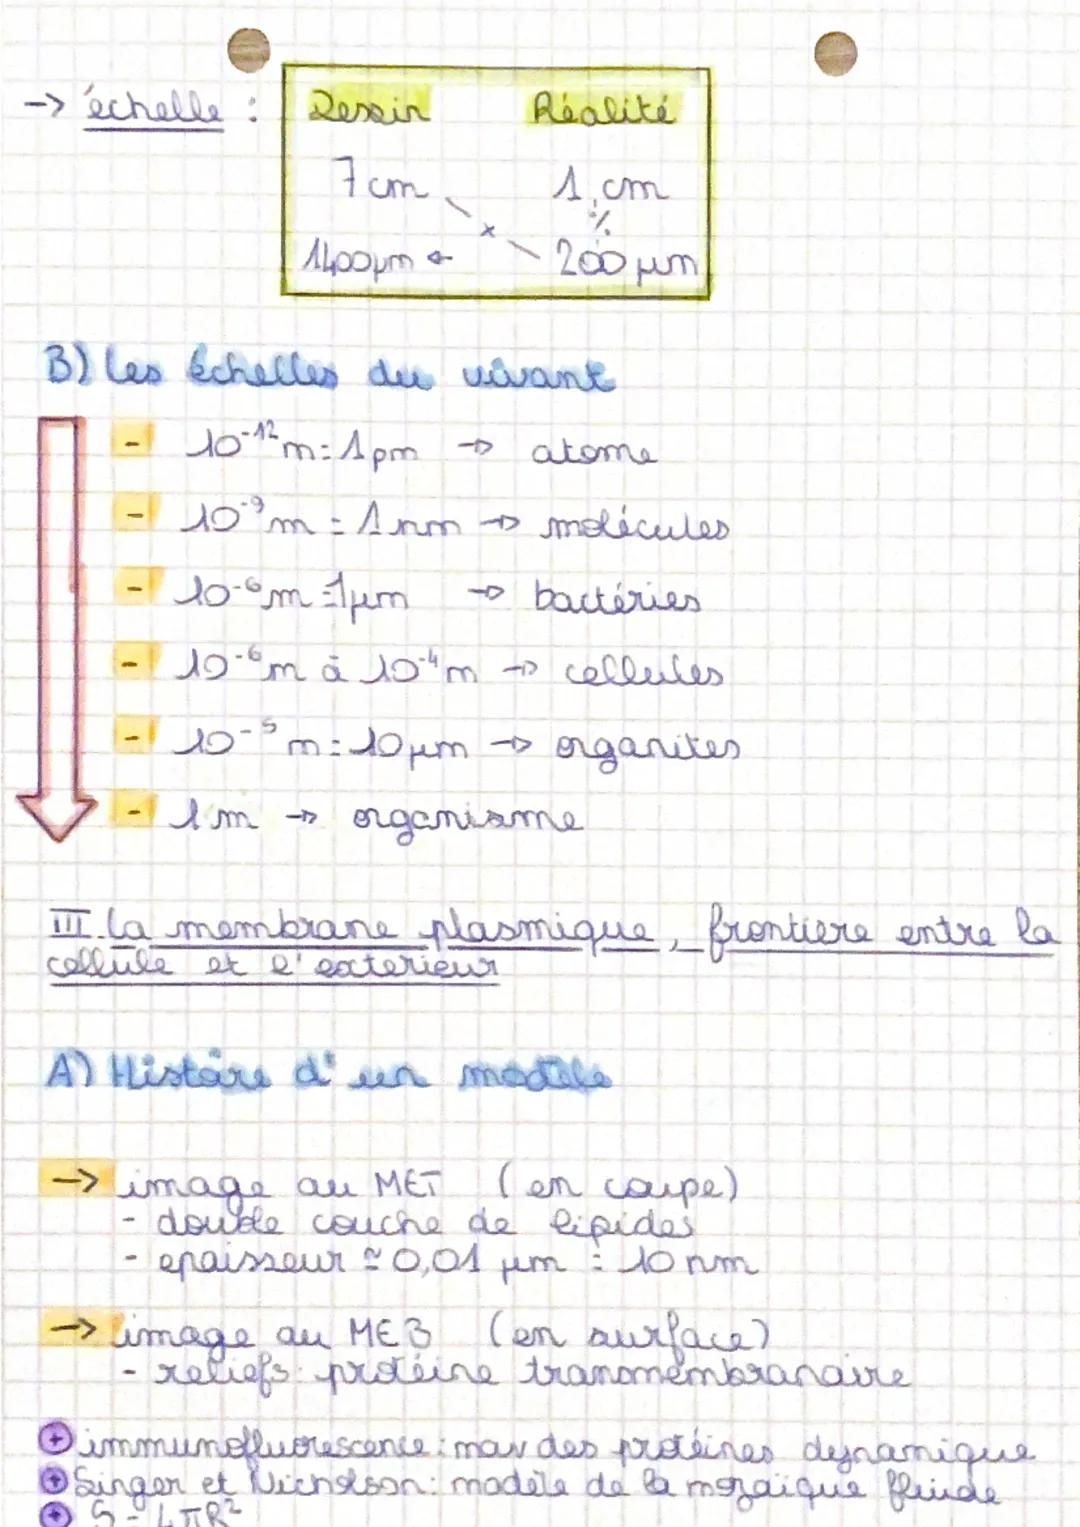 -> échelle :
Dessin Réalité
7 cm 1 cm
x %
1400 µm 200 µm
B) Les échelles du vivant
- 10⁻¹² m = 1 pm -> atome
- 10⁻⁹ m = 1 nm -> molécules
- 10⁻⁶ m = 1 µm -> bactéries
- 10⁻⁶ m à 10⁻⁴ m -> cellules
- 10⁻⁵ m = 10 µm -> organites
- 1 m -> organisme
III. La membrane plasmique, frontiere entre la
cellule et l'exterieur
A) Histoire d'un modèle
-> image au MET (en coupe)
- double couche de lipides
- epaisseur ≃ 0,01 µm = 10 nm
-> image au MEB (en surface)
- reliefs : protéine transmembranaire
+ immunofluorescence : mav des protéines dynamique
+ Singer et Nicholson : modèle de la mozaïque fluide
+ S = 4πR²